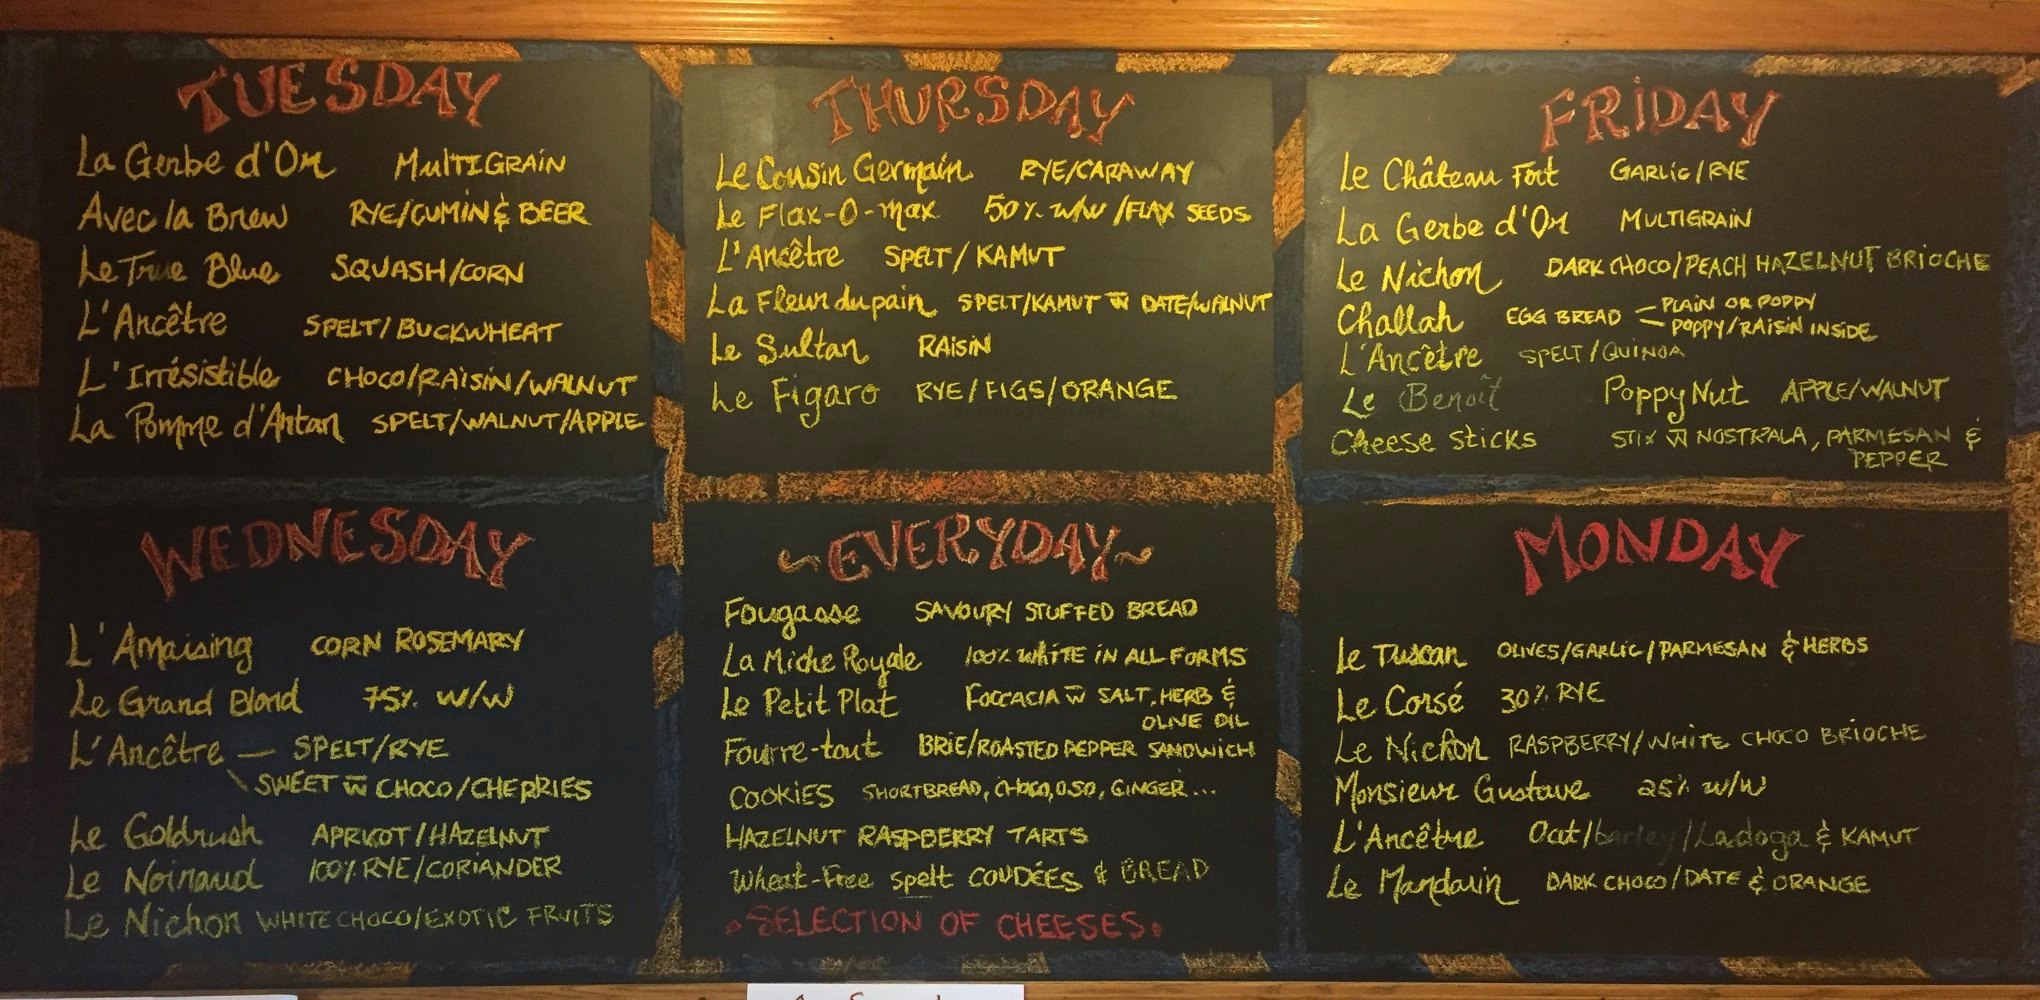 TUESDAY
La Gerbe d'Or MULTIGRAIN
Avec la Brew RYE/CUMIN & BEER
Le True Blue SQUASH/CORN
L'Ancêtre SPELT/BUCKWHEAT
L'Irrésistible CHOCO/RAISIN/WALNUT
La Pomme d'Antan SPELT/WALNUT/APPLE
THURSDAY
Le Cousin Germain RYE/CARAWAY
Le Flax-O-max 50% W/W /FLAX SEEDS
L'Ancêtre SPELT/KAMUT
La Fleur du pain SPELT/KAMUT w DATE/WALNUT
Le Sultan RAISIN
Le Figaro RYE/FIGS/ORANGE
FRIDAY
Le Château Fort GARLIC/RYE
La Gerbe d'Or MULTIGRAIN
Le Nichon DARK CHOCO/PEACH HAZELNUT BRIOCHE
Challah EGG BREAD PLAIN OR POPPY
POPPY/RAISIN INSIDE
L'Ancêtre SPELT/QUINOA
Le Benoît Poppy Nut APPLE/WALNUT
Cheese sticks STIX w NOSTRALA, PARMESAN &
PEPPER
WEDNESDAY
L'Amaising CORN ROSEMARY
Le Grand Blond 75% W/W
L'Ancêtre — SPELT/RYE
SWEET w CHOCO/CHERRIES
Le Goldrush APRICOT/HAZELNUT
Le Noiraud 100% RYE/CORIANDER
Le Nichon WHITE CHOCO/EXOTIC FRUITS
~EVERYDAY~
Fougasse SAVOURY STUFFED BREAD
La Miche Royale 100% WHITE IN ALL FORMS
Le Petit Plat FOCCACIA w SALT, HERB &
OLIVE OIL
Fourre-tout BRIE/ROASTED PEPPER SANDWICH
COOKIES SHORTBREAD, CHOCO, OSO, GINGER...
HAZELNUT RASPBERRY TARTS
Wheat-Free spelt COUDÉES & BREAD
SELECTION OF CHEESES
MONDAY
Le Tuscan OLIVES/GARLIC/PARMESAN & HERBS
Le Corsé 30% RYE
Le Nichon RASPBERRY/WHITE CHOCO BRIOCHE
Monsieur Gustave 25% W/W
L'Ancêtre Oat/barley/Ladoga & KAMUT
Le Mandarin DARK CHOCO/DATE & ORANGE